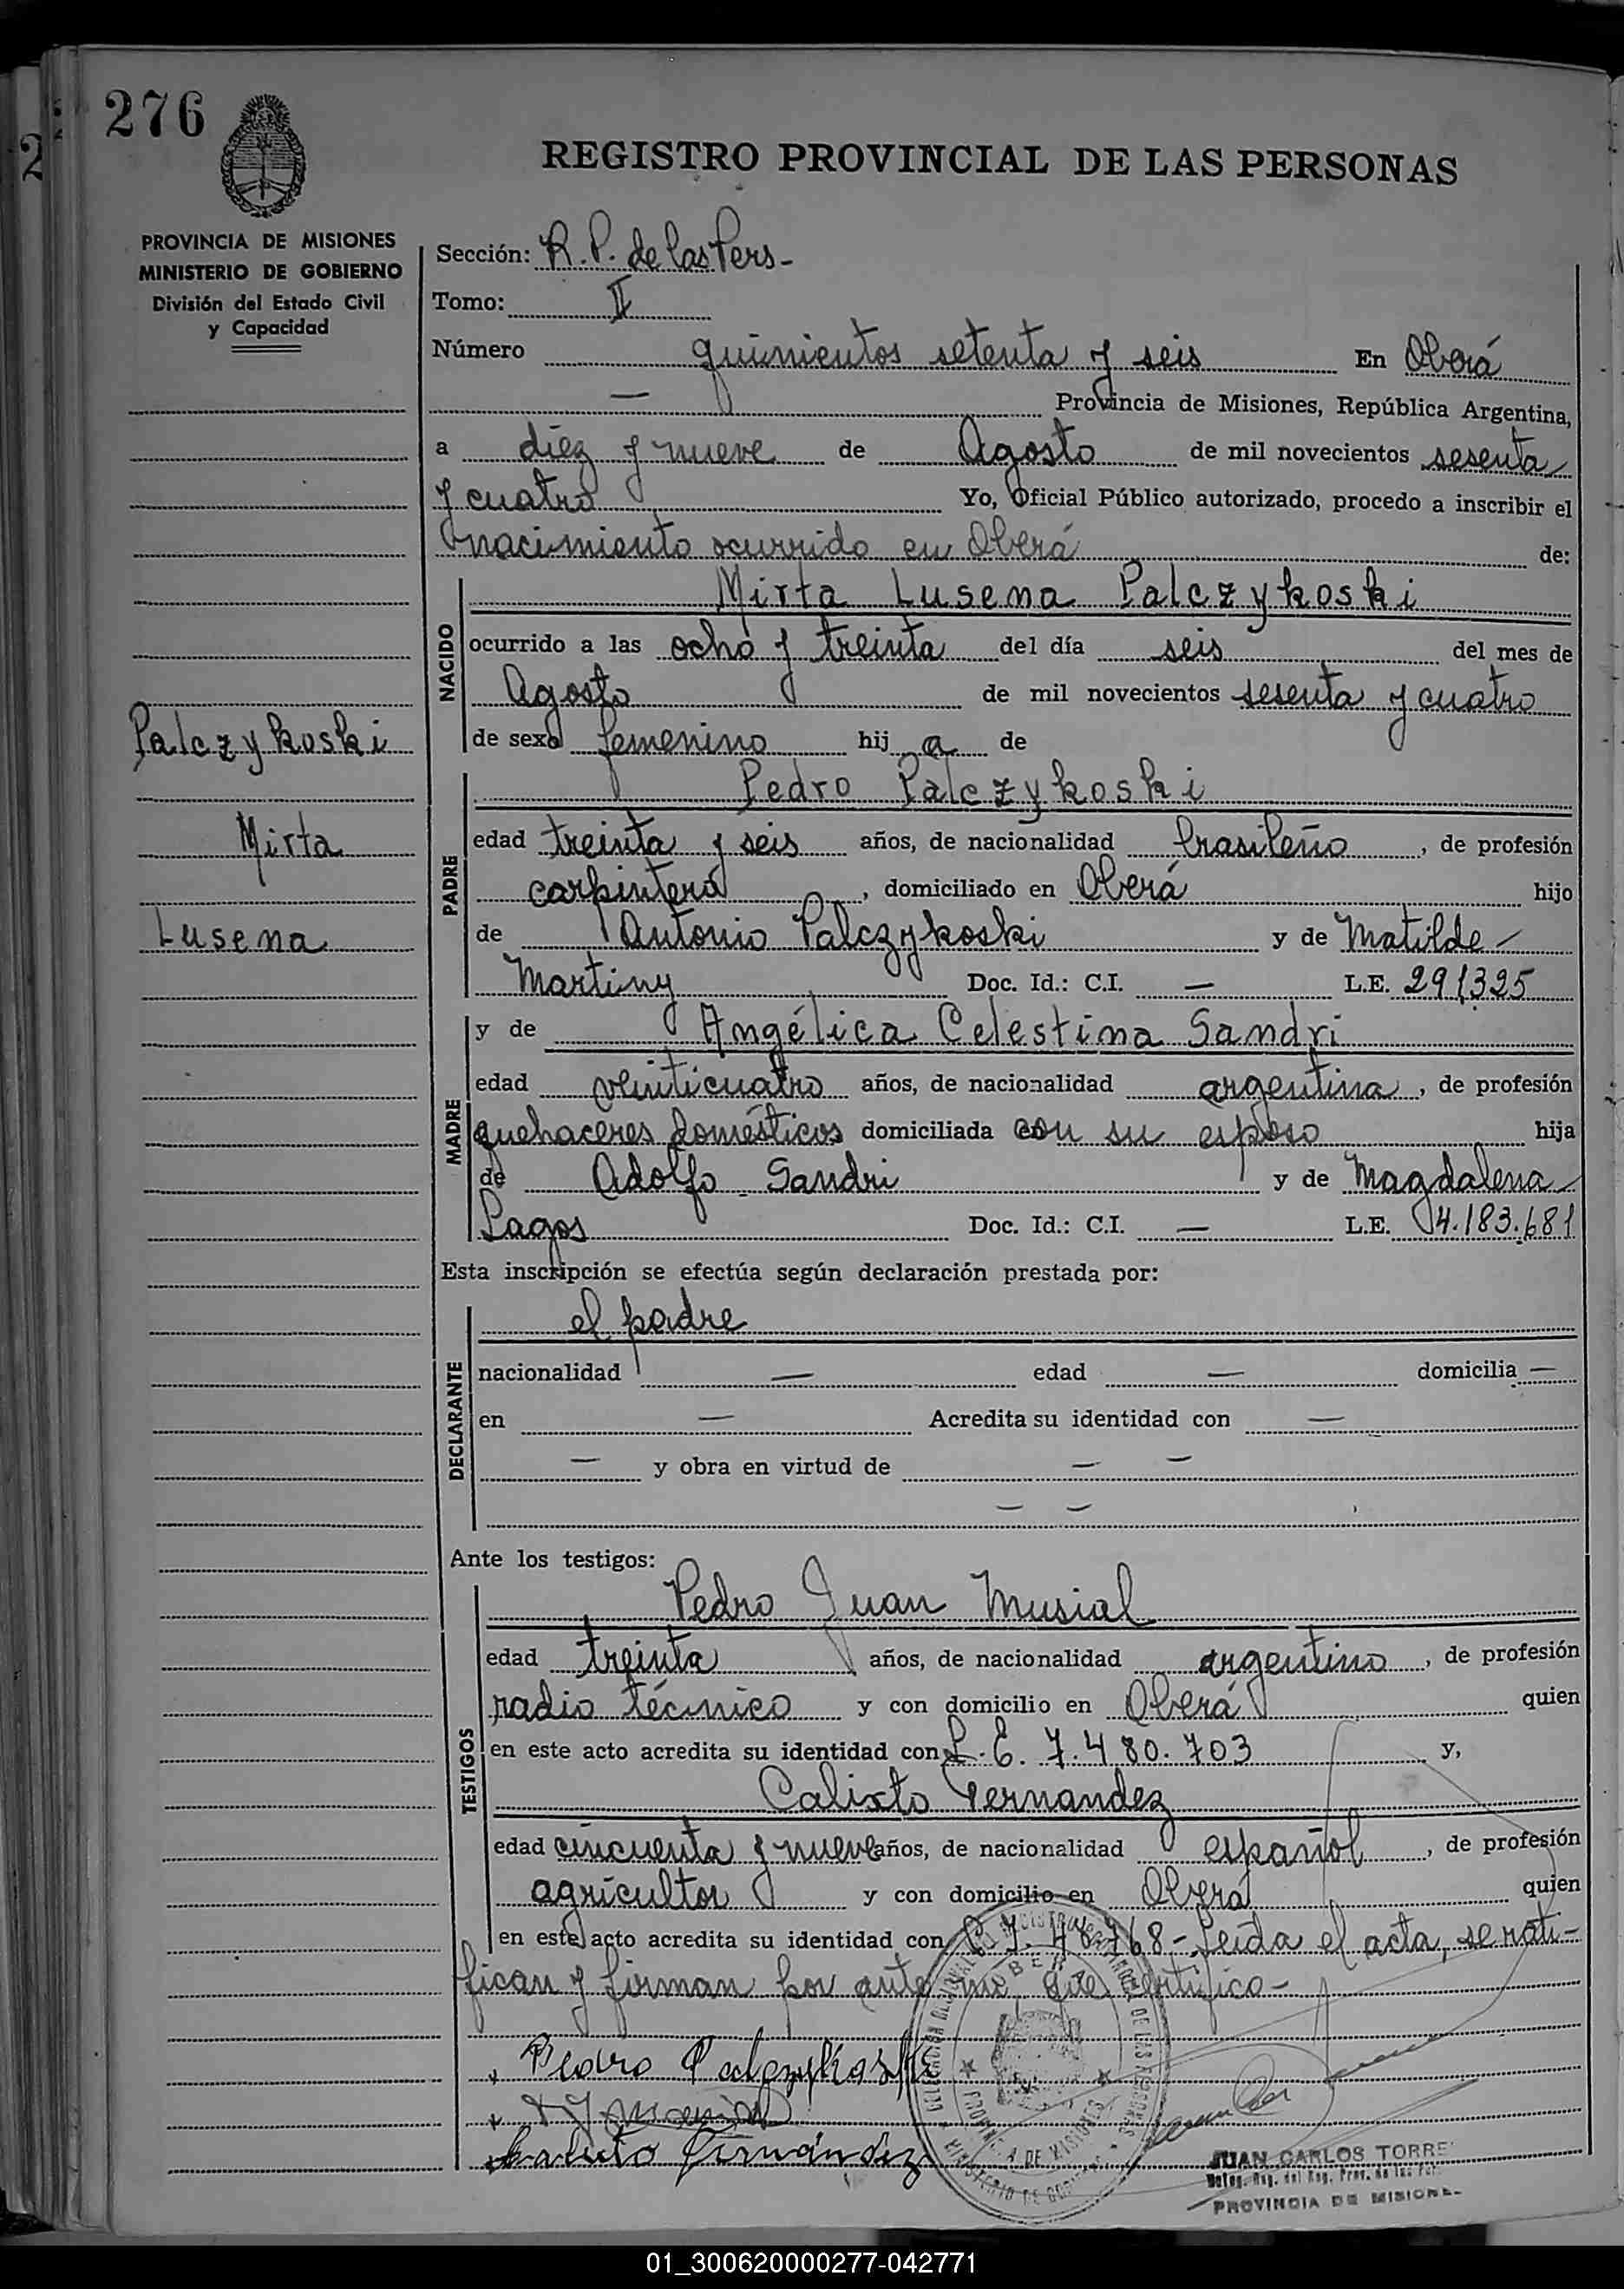 276
REGISTRO PROVINCIAL DE LAS PERSONAS
PROVINCIA DE MISIONES
MINISTERIO DE GOBIERNO
División del Estado Civil
y Capacidad
Sección: R. P. de las Pers-
Tomo: II
Número quinientos setenta y seis En Oberá
— Provincia de Misiones, República Argentina,
a diez y nueve de Agosto de mil novecientos sesenta
y cuatro Yo, Oficial Público autorizado, procedo a inscribir el
nacimiento ocurrido en Oberá de:
NACIDO
Mirta Lusena Palczykoski
ocurrido a las ocho y treinta del día seis del mes de
Agosto de mil novecientos sesenta y cuatro
de sexo femenino hij a de
Palczykoski
Mirta
Lusena
PADRE
Pedro Palczykoski
edad treinta y seis años, de nacionalidad brasileño, de profesión
carpintero, domiciliado en Oberá hijo
de Antonio Palczykoski y de Matilde -
Martiny Doc. Id.: C.I. — L.E. 291325
MADRE
y de Angélica Celestina Sandri
edad veinticuatro años, de nacionalidad argentina, de profesión
quehaceres domésticos domiciliada con su esposo hija
de Adolfo Sandri y de Magdalena
Lagos Doc. Id.: C.I. — L.E. 4.183.681
Esta inscripción se efectúa según declaración prestada por:
DECLARANTE
el padre
nacionalidad — edad — domicilia —
en — Acredita su identidad con —
— y obra en virtud de — —
— —
Ante los testigos:
TESTIGOS
Pedro Juan Musial
edad treinta años, de nacionalidad argentino, de profesión
radio técnico y con domicilio en Oberá quien
en este acto acredita su identidad con L. E. 7.480.703 y,
Calixto Fernandez
edad cincuenta y nueve años, de nacionalidad español, de profesión
agricultor y con domicilio en Oberá quien
en este acto acredita su identidad con C. I. - Leída el acta, se rati-
fican y firman por ante mi, que certifico-
Pedro Palczykoski
Calixto Fernández
OBERA
PROVINCIA DE MISIONES
JUAN CARLOS TORRE
PROVINCIA DE MISIONE
01_300620000277-042771